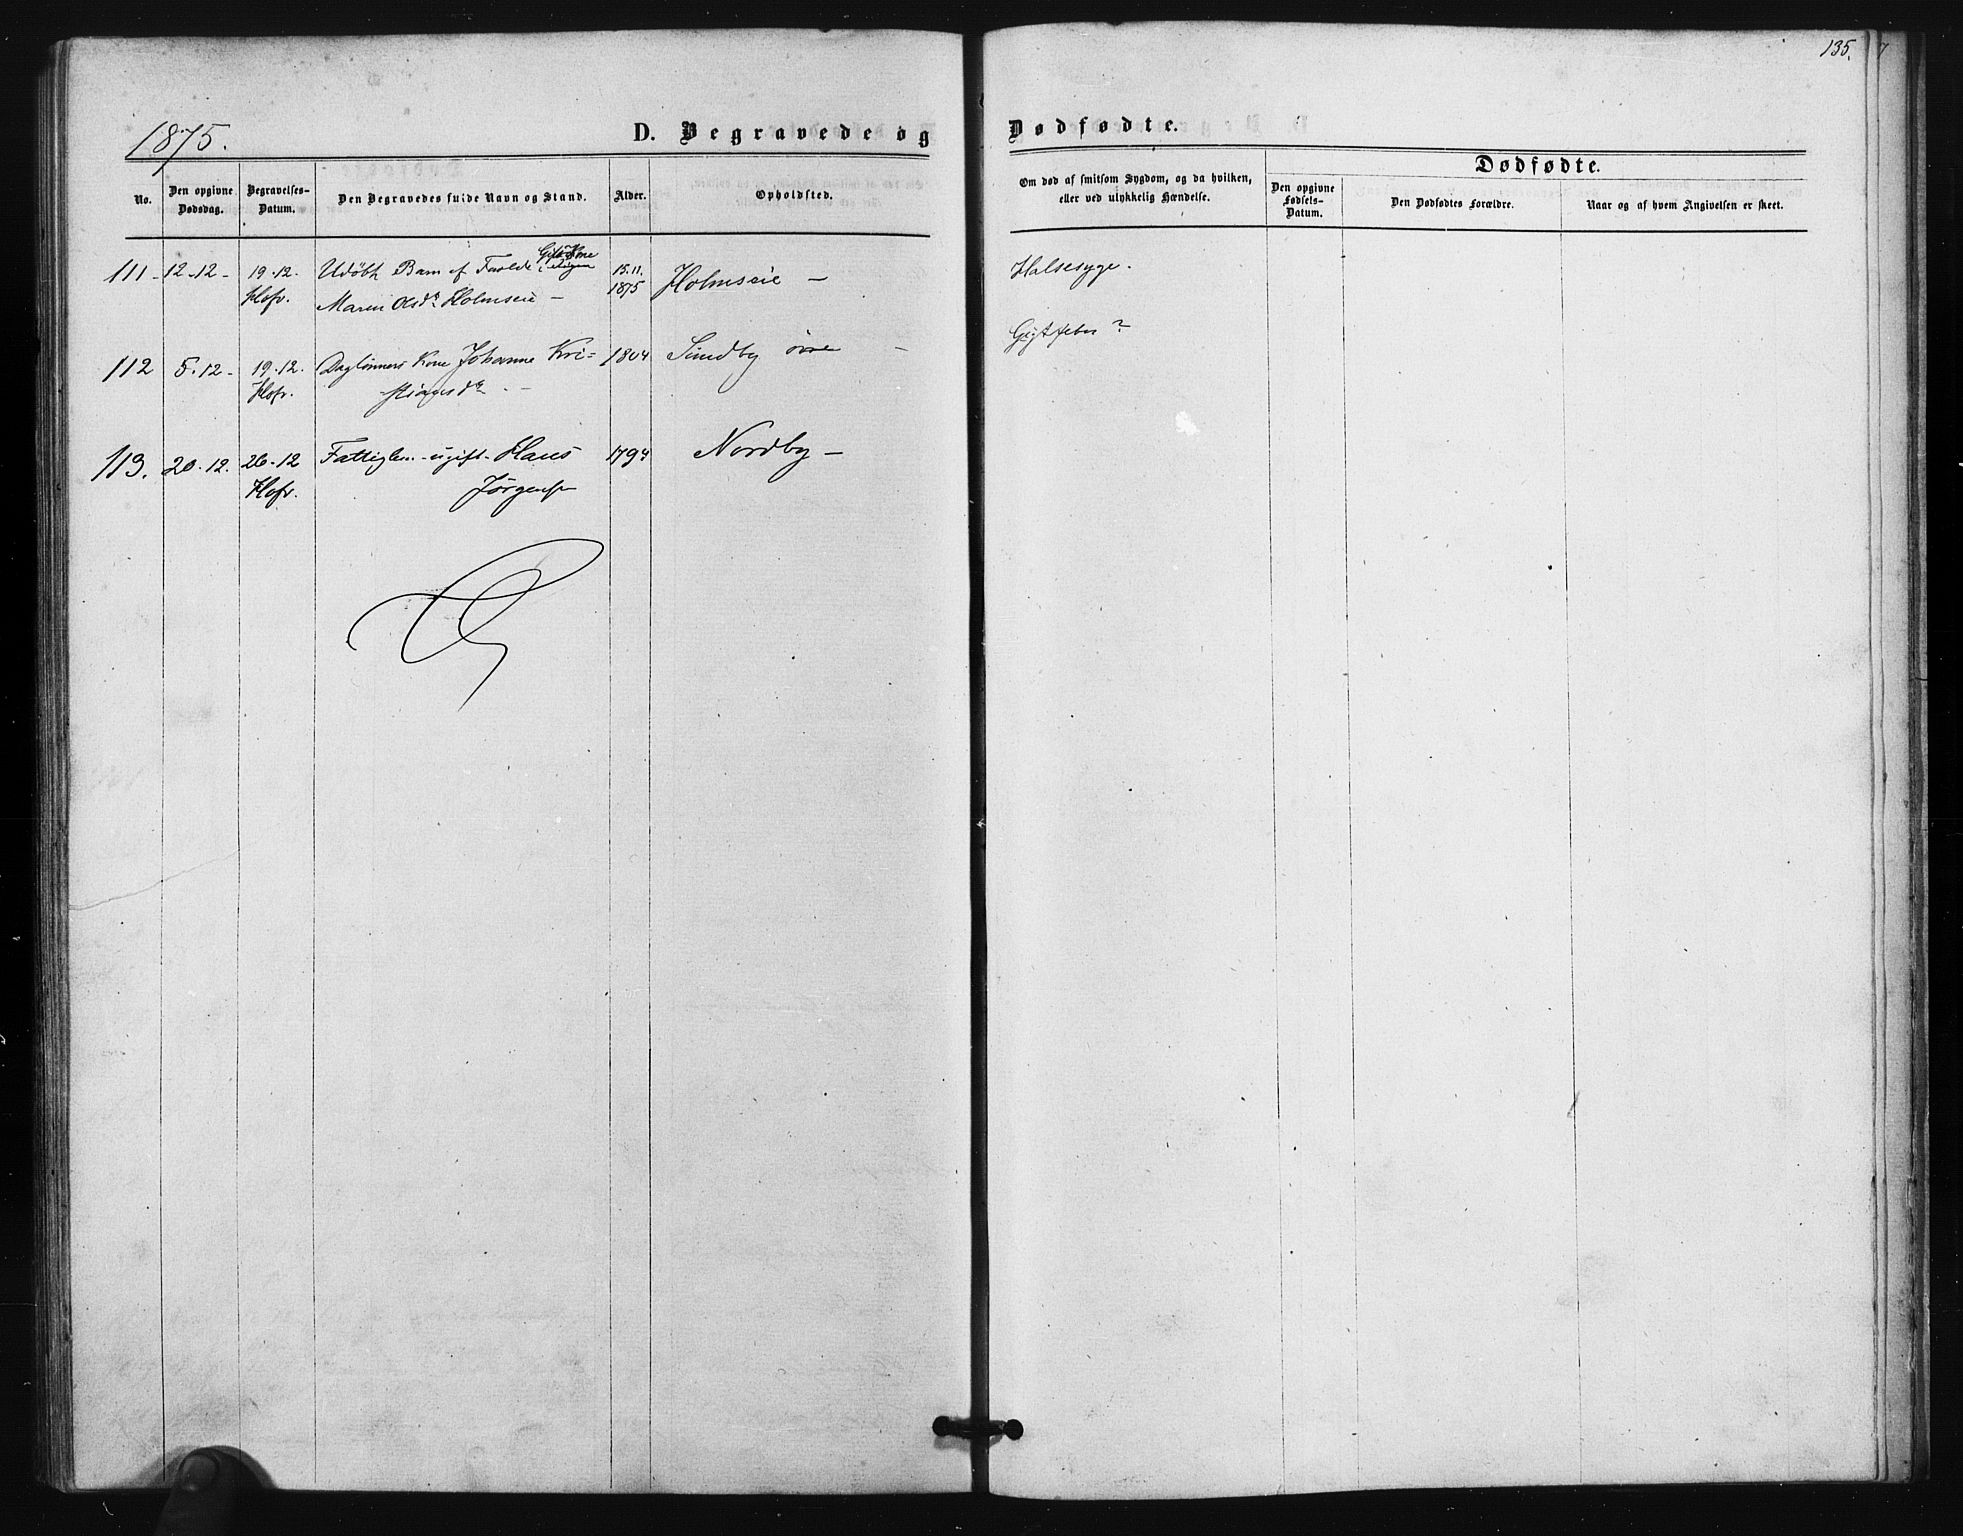 135.
1875.
D. Begravede og Dødfødte.
Dødfødte.
No.
Den opgivne Dødsdag.
Begravelses-Datum.
Den Begravedes fulde Navn og Stand.
Alder.
Opholdsted.
Om død af smitsom Sygdom, og da hvilken, eller ved ulykkelig Hændelse.
Den opgivne Fødsels-Datum.
Den Dødfødtes Forældre.
Naar og af hvem Angivelsen er skeet.
111 - 12-12 - 19-12. Udøbt Barn af 15.11. Holmseie - Halsesyge.
Hofv. Maren Olsdr. Holmseie - 1875
112 5.12 - 19-12. Daglønners Kone Johanne Kri= 1804 Sundby øvre - Gigtfeber ?
Hofv. -stiansdr. -
113. 20.12. 26-12 Fattiglem - ugift - Hans 1794 Nordby -
Hofv. Jørgens